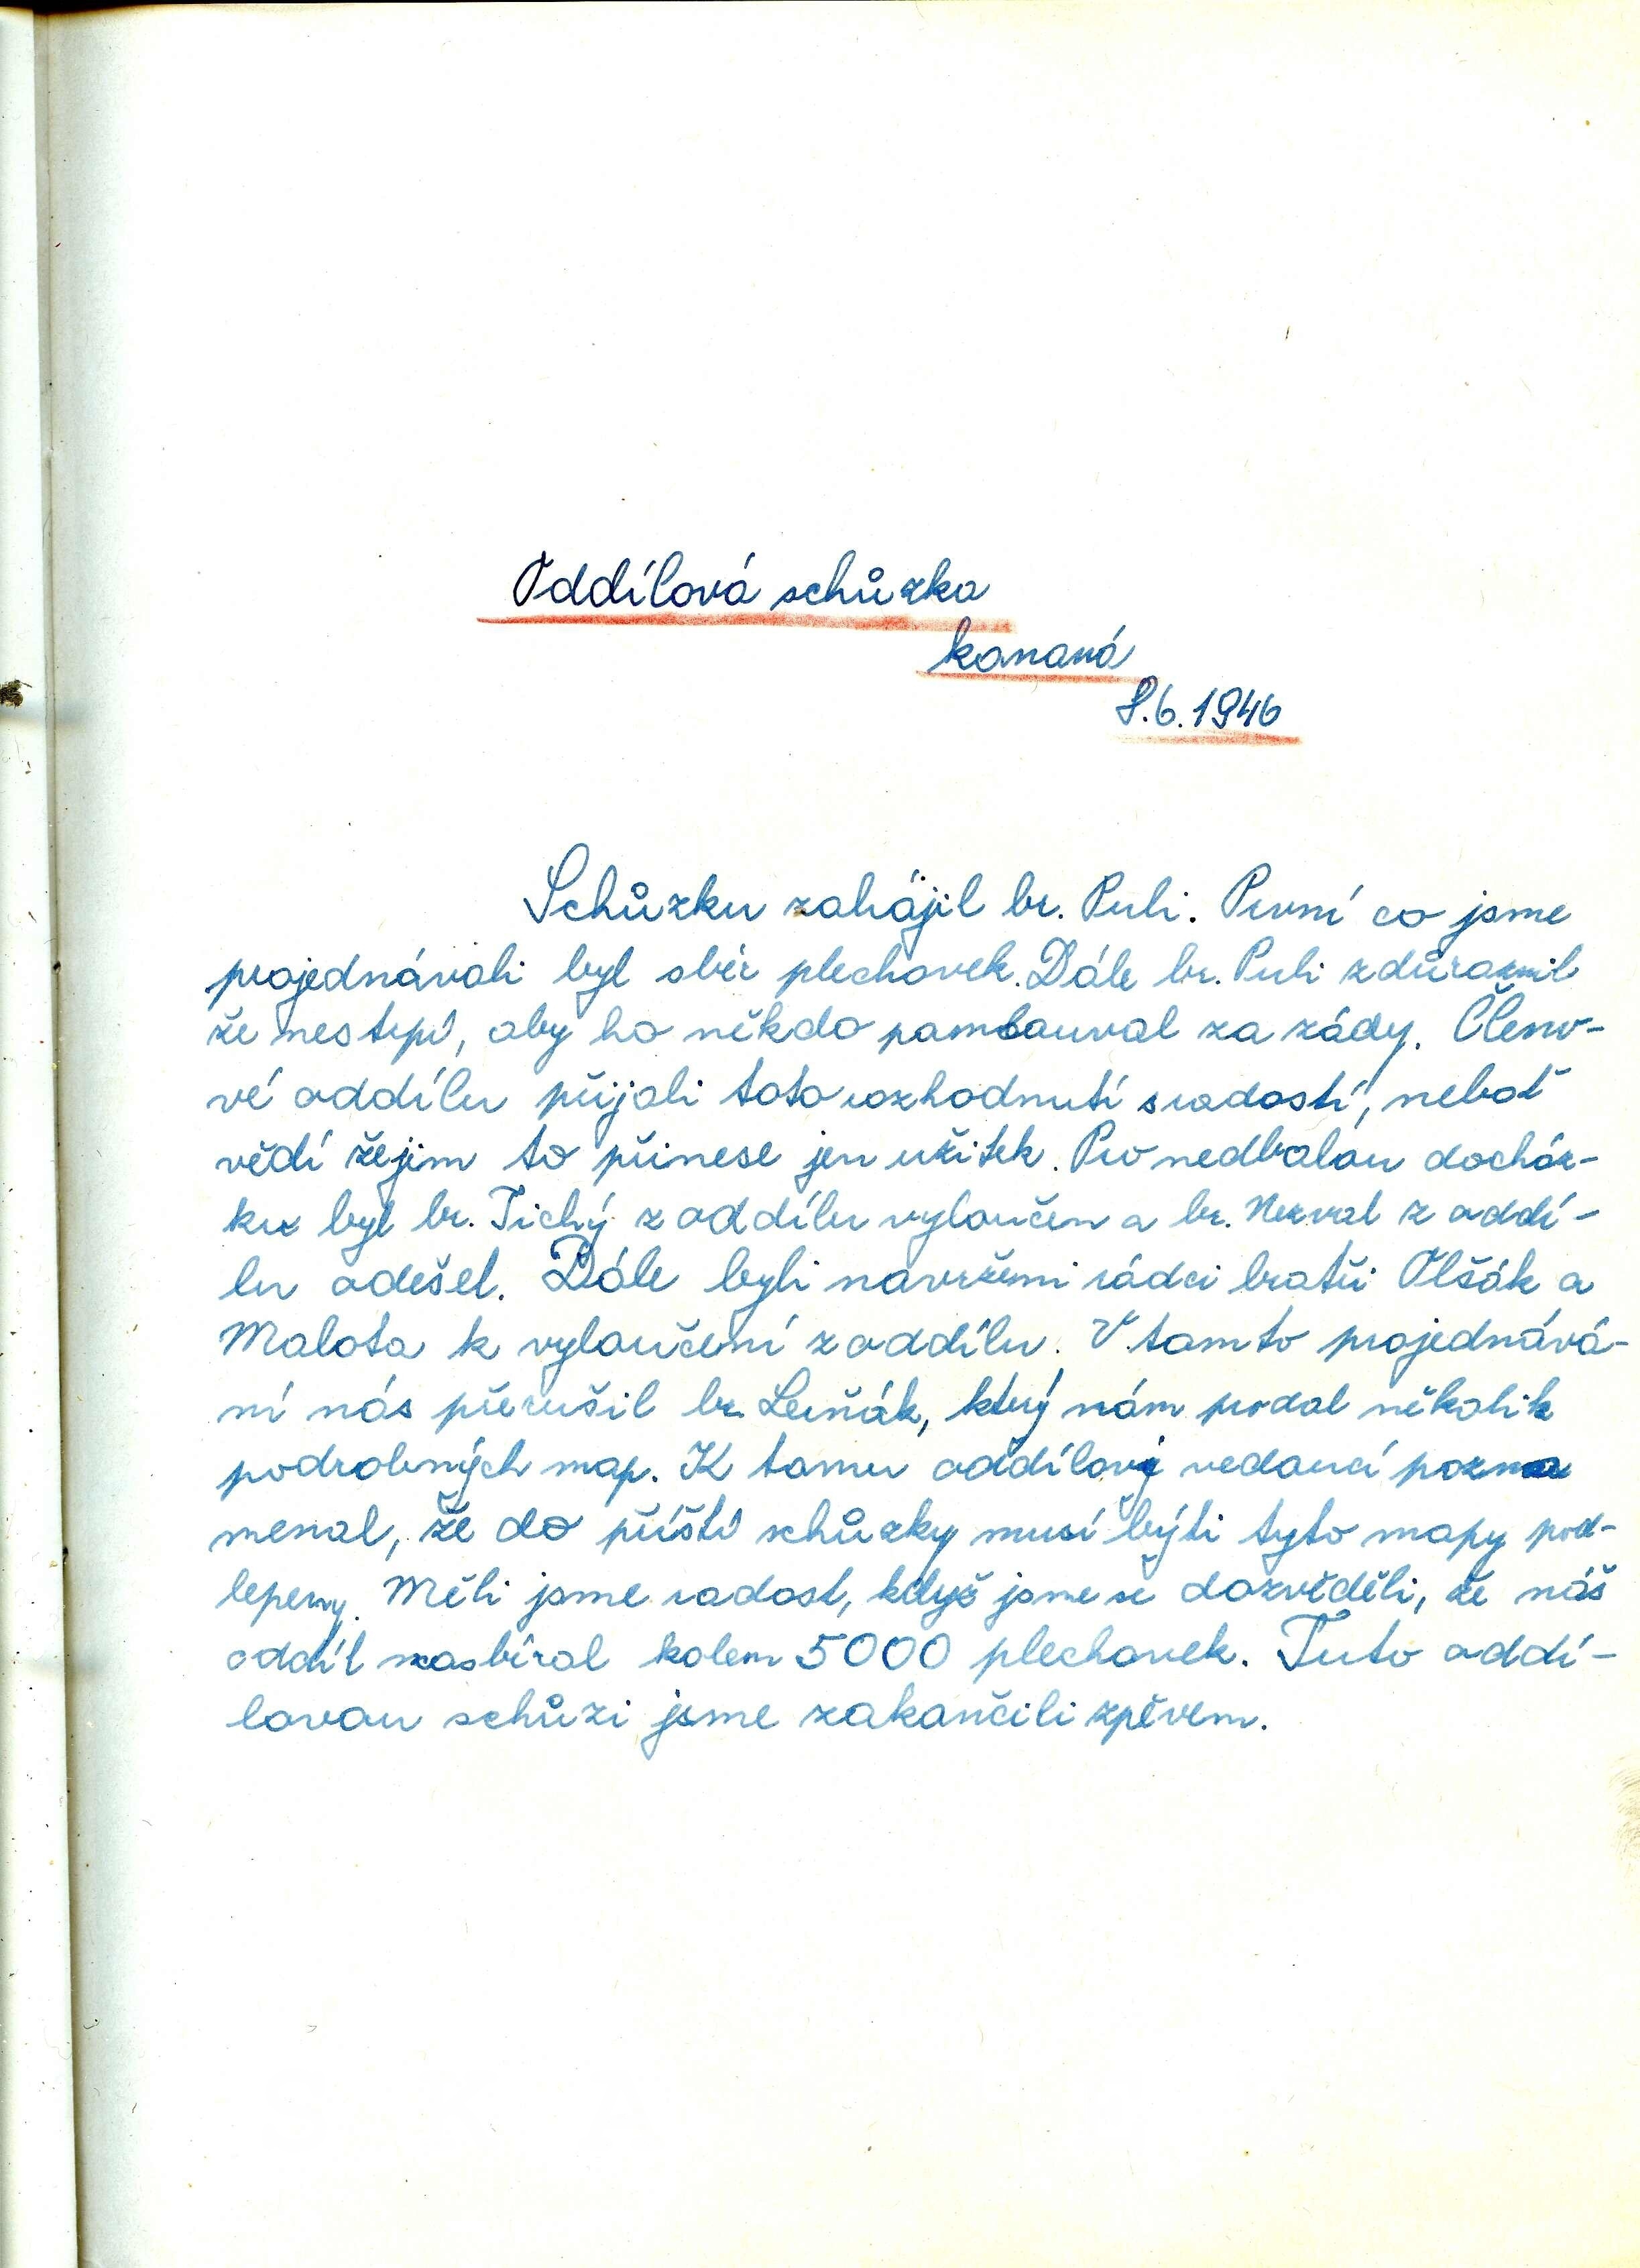 Oddílová schůzka
konaná
8.6.1946
Schůzku zahájil br. Puli. První co jsme
projednávali byl sběr plechovek. Dále br. Puli zdůraznil
že nestrpí, aby ho někdo pomlouval za zády. Členo-
vé oddílu přijali toto rozhodnutí s radostí, neboť
vědí žejim to přinese jen užitek. Pro nedbalou docház-
ku byl br. Tichý z oddílu vyloučen a br. Nezval z oddí-
lu odešel. Dále byli navrženi rádci bratři Olšák a
Malota k vyloučení z oddílu. V tomto projednává-
ní nás přerušil br. Lerňák, který nám prodal několik
podrobných map. K tomu oddílový vedoucí pozna
menal, že do příští schůzky musí býti tyto mapy pod-
lepeny. Měli jsme radost, když jsme se dozvěděli, že náš
oddíl nasbíral kolem 5000 plechovek. Tuto oddí-
lovou schůzi jsme zakončili zpěvem.